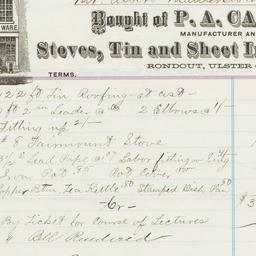 WARE
Bought of P. A. CA
MANUFACTURER AN
Stoves, Tin and Sheet I
RONDOUT, ULSTER
TERMS.
122 ft Tin Roofing at cost
ft 2 in Leader @ 2 Elbows @ 1/-
Fitting up 2/-
# 8 Fairmount Stove
3 1/2 Lead Pipe @ Labor fitting on
Iron Pot 85 Pot Cover
Copper Btm Tea Kettle .80 Stamped Dish Pan .80
-Cr-
$3
By Ticket for Course of Lectures
" Bill Rendered